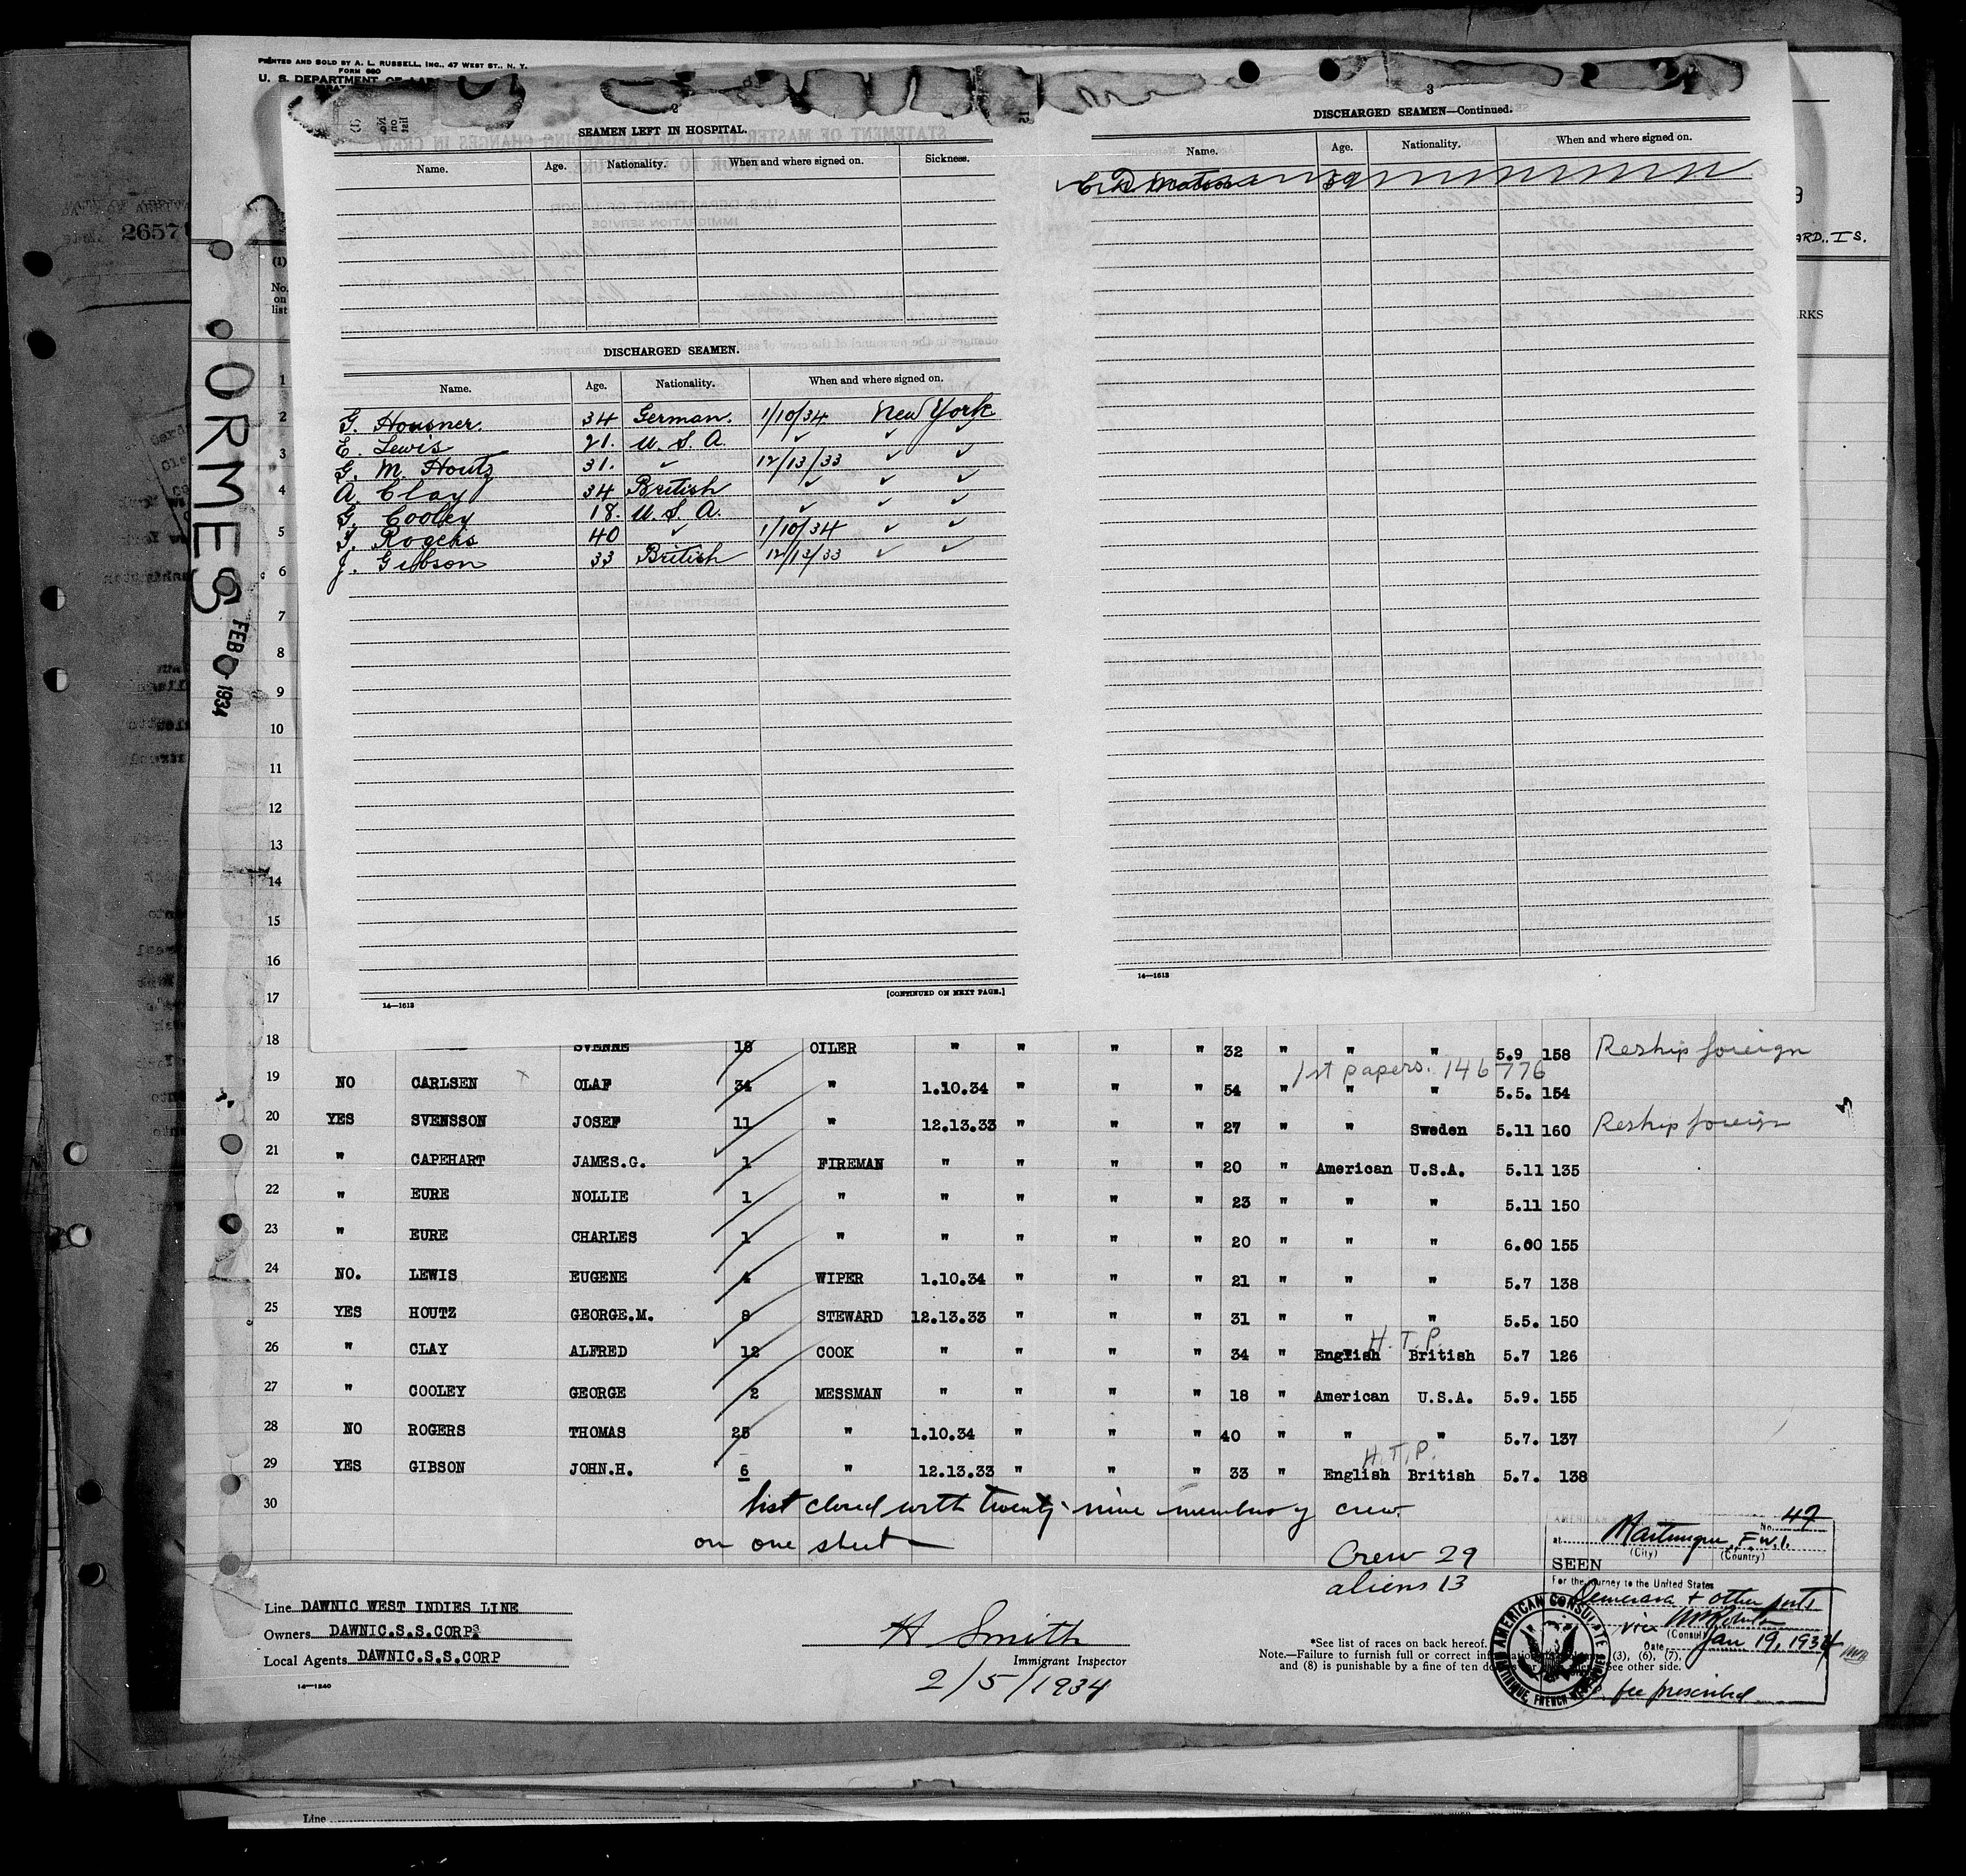 PRINTED AND SOLD BY A. L. RUSSELL, INC., 47 WEST ST., N. Y.
FORM 680
U. S. DEPARTMENT OF LAB
26577
ORMES
FEB 1934
ARD., I S.
RKS
(1)
No. on list
2
SEAMEN LEFT IN HOSPITAL.
Name. Age. Nationality. When and where signed on. Sickness.
DISCHARGED SEAMEN.
Name. Age. Nationality. When and where signed on.
G. Housner. 34 German. 1/10/34 New York
E. Lewis 21. U. S. A. ✓ ✓ ✓
G. M. Houtz 31. ✓ 12/13/33 ✓ ✓
A. Clay 34 British ✓ ✓ ✓
G. Cooley 18. U. S. A. ✓ ✓ ✓
T. Rogers 40 ✓ 1/10/34 ✓ ✓
J. Gibson 33 British 12/13/33 ✓ ✓
14—1613
[CONTINUED ON NEXT PAGE.]
3
DISCHARGED SEAMEN—Continued.
Name. Age. Nationality. When and where signed on.
39
14—1613
1
2
3
4
5
6
7
8
9
10
11
12
13
14
15
16
17
18 SVENNE 18 OILER " " " " 32 " " " 5.9 158 Reship foreign
1st papers. 146776
19 NO CARLSEN OLAF 34 " 1.10.34 " " " 54 " " " 5.5. 154
20 YES SVENSSON JOSEF 11 " 12.13.33 " " " 27 " " Sweden 5.11 160 Reship foreign
21 " CAPEHART JAMES.G. 1 FIREMAN " " " " 20 " American U.S.A. 5.11 135
22 " EURE NOLLIE 1 " " " " " 23 " " " 5.11 150
23 " EURE CHARLES 1 " " " " " 20 " " " 6.00 155
24 NO. LEWIS EUGENE 4 WIPER 1.10.34 " " " 21 " " " 5.7 138
25 YES HOUTZ GEORGE.M. 8 STEWARD 12.13.33 " " " 31 " " " 5.5. 150
H.T.P.
26 " CLAY ALFRED 12 COOK " " " " 34 " English British 5.7 126
27 " COOLEY GEORGE 2 MESSMAN " " " " 18 " American U.S.A. 5.9. 155
28 NO ROGERS THOMAS 25 " 1.10.34 " " " 40 " " " 5.7. 137
H.T.P.
29 YES GIBSON JOHN.H. 6 " 12.13.33 " " " 33 " English British 5.7. 138
30 list closed with twenty-nine members of crew.
on one sheet
Crew 29
aliens 13
Line DAWNIC WEST INDIES LINE
Owners DAWNIC.S.S.CORP
Local Agents DAWNIC.S.S.CORP
14—1240
H Smith
Immigrant Inspector
2/5/1934
*See list of races on back hereof.
Note.—Failure to furnish full or correct (3), (6), (7),
and (8) is punishable by a fine of ten See other side.
No. 49
at Martinique, F.W.I.
(City) (Country)
SEEN
For the journey to the United States
Demerara & other ports
(Consul)
Date Jan 19, 1934
fee prescribed
AMERICAN CONSULATE
MARTINIQUE, FRENCH WEST INDIES
Line